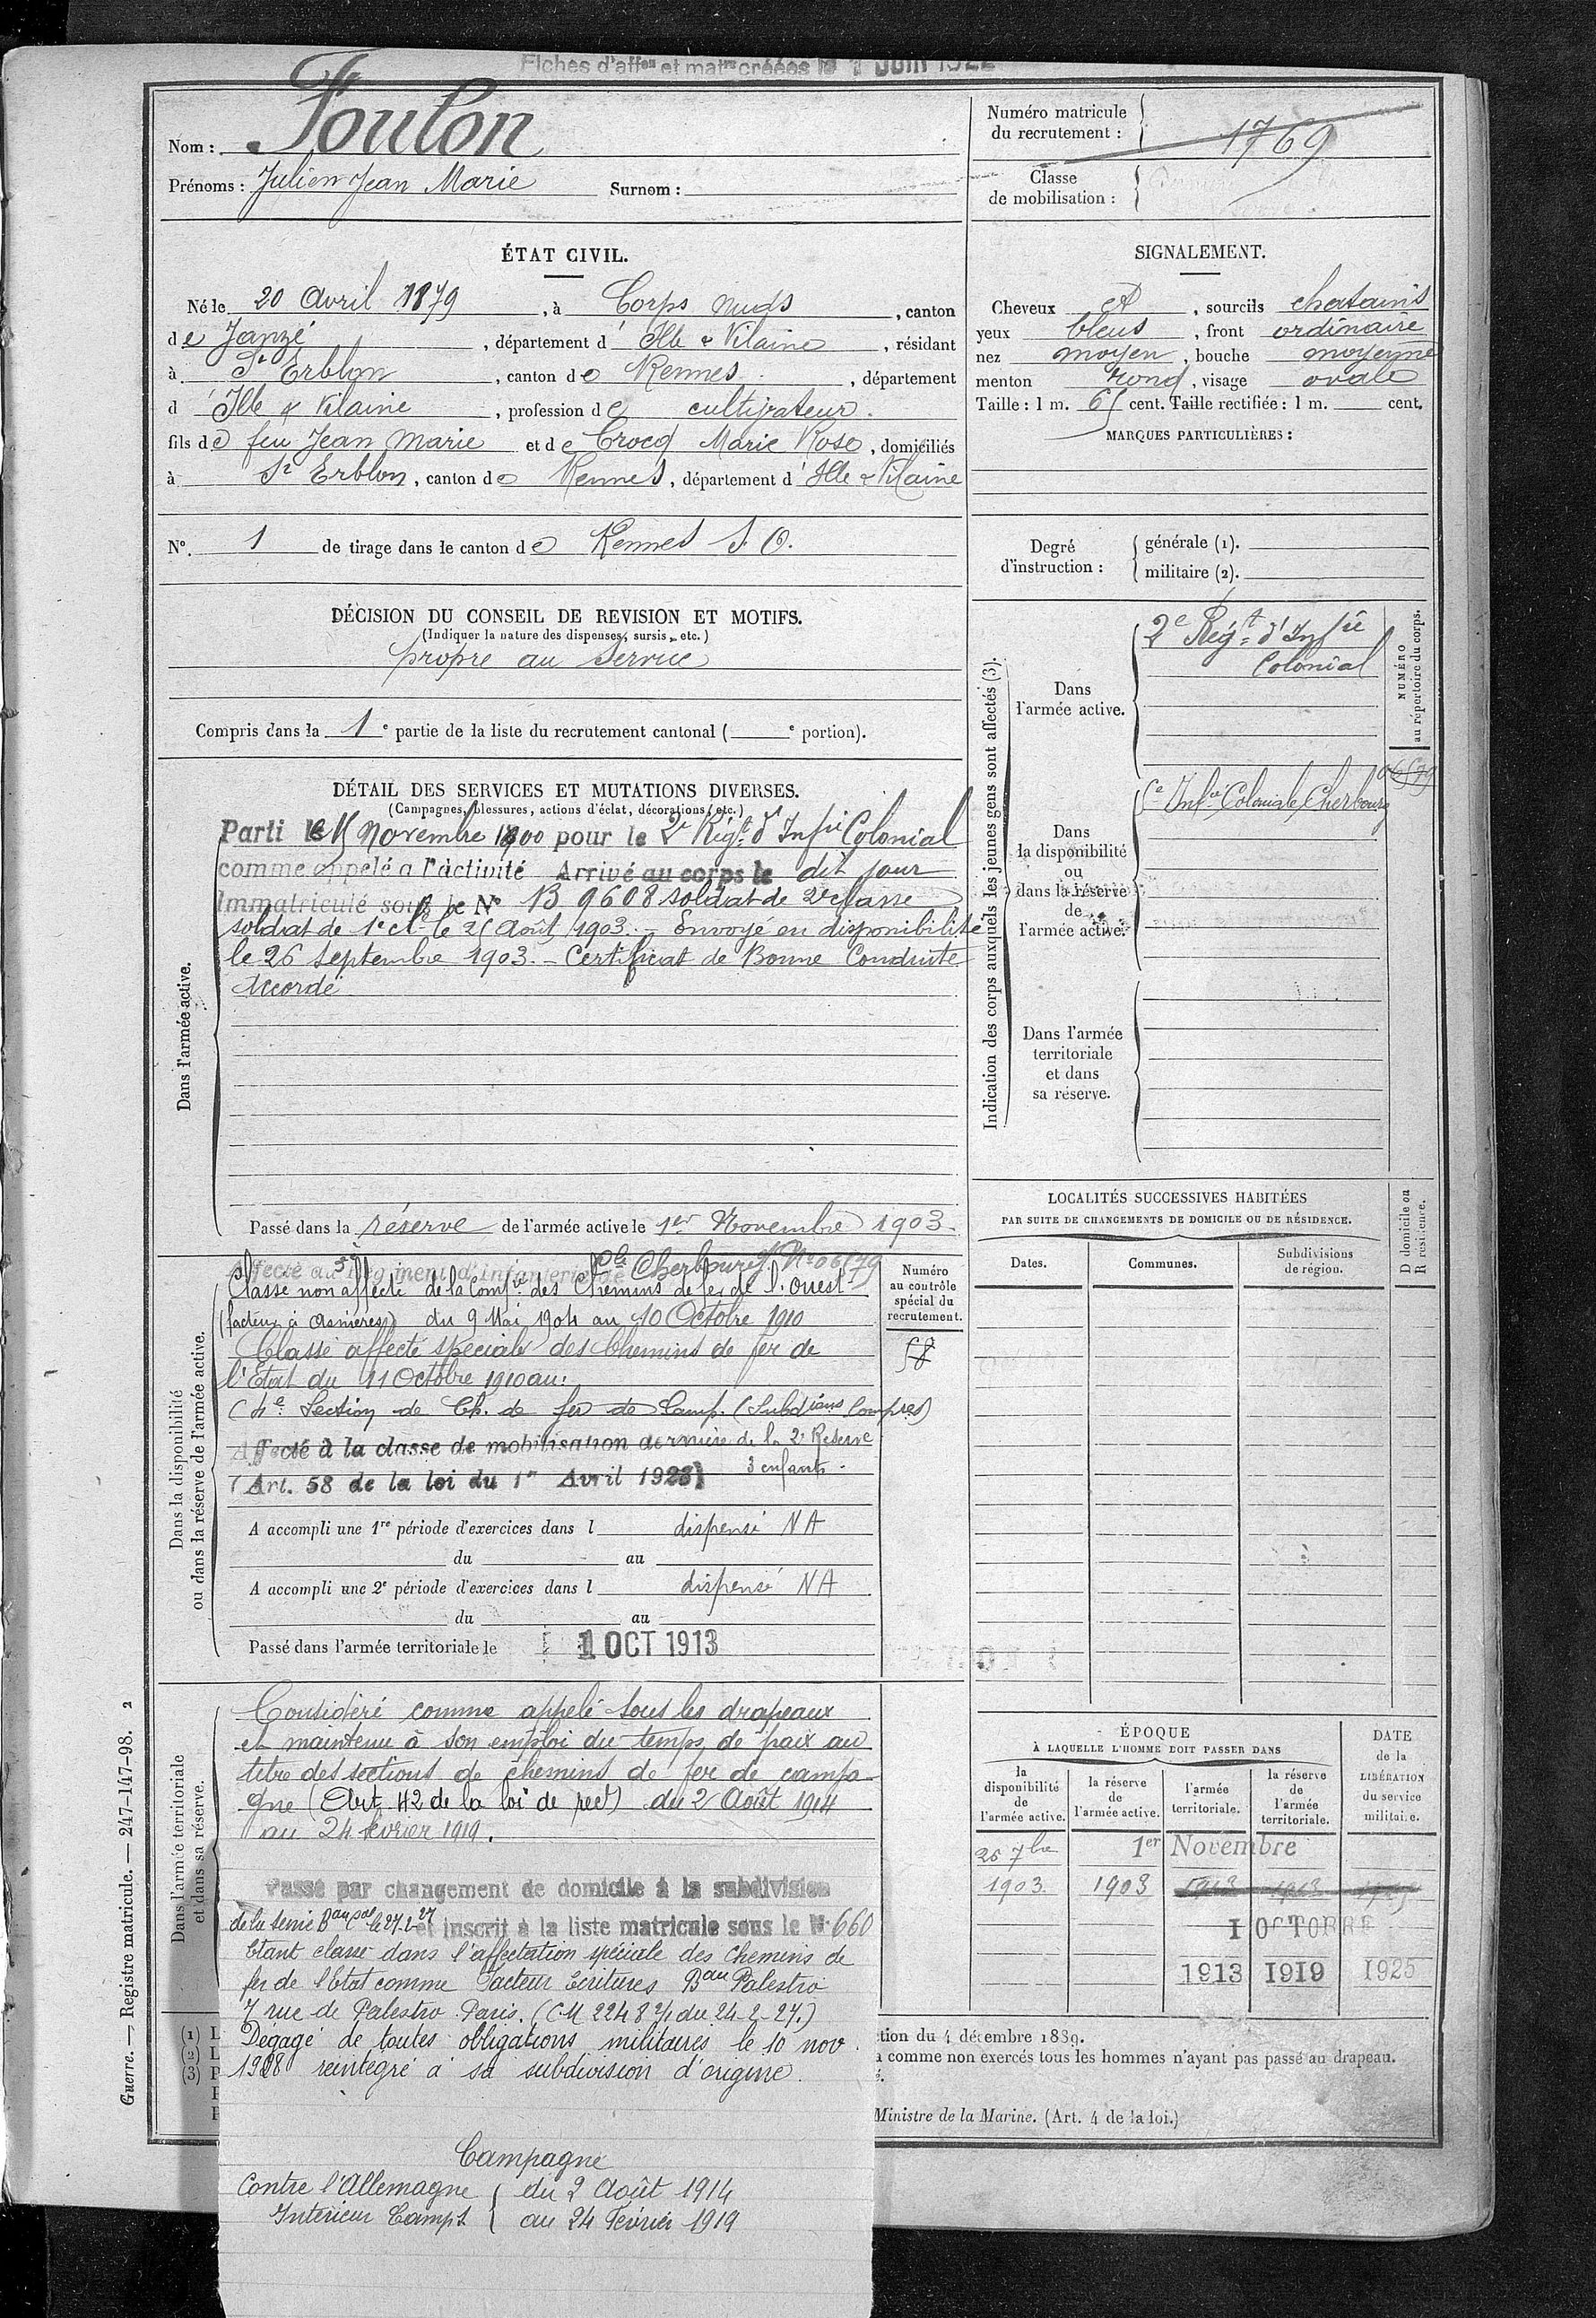 Fiches d'affon et matre créées le 1 Juin 1922
Nom : Foulon
Prénoms : Julien Jean Marie Surnom :
Numéro matricule
du recrutement : 1769
Classe
de mobilisation :
ÉTAT CIVIL.
Né le 20 Avril 1879, à Corps Nuds, canton
de Janzé, département d' Ille & Vilaine, résidant
à St Erblon, canton de Rennes, département
d' Ille & Vilaine, profession de cultivateur.
fils de feu Jean Marie et de Crocq Marie Rose, domiciliés
à St Erblon, canton de Rennes, département d' Ille & Vilaine
N° 1 de tirage dans le canton de Rennes S.O.
SIGNALEMENT.
Cheveux et, sourcils chatains
yeux bleus, front ordinaire
nez moyen, bouche moyenne
menton rond, visage ovale
Taille : 1 m. 65 cent. Taille rectifiée : 1 m. cent.
MARQUES PARTICULIÈRES :
Degré
d'instruction :
générale (1).
militaire (2).
DÉCISION DU CONSEIL DE REVISION ET MOTIFS.
(Indiquer la nature des dispenses, sursis, etc.)
propre au service
Compris dans la 1e partie de la liste du recrutement cantonal ( e portion).
DÉTAIL DES SERVICES ET MUTATIONS DIVERSES.
(Campagnes, blessures, actions d'éclat, décorations, etc.)
Dans l'armée active.
Parti le 15 Novembre 1900 pour le 2e Régt d'Infie Colonial
comme appelé à l'activité Arrivé au corps le dit jour
Immatriculé sous le N° 13 9608 soldat de 2e classe
soldat de 1e cl. le 25 Août 1903. - Envoyé en disponibilité
le 26 septembre 1903. - Certificat de Bonne Conduite
Accordé
Passé dans la réserve de l'armée active le 1er Novembre 1903.
Indication des corps auxquels les jeunes gens sont affectés (3).
Dans
l'armée active.
2e Régt d'Infie
Colonial
NUMÉRO
au répertoire du corps.
Dans
la disponibilité
ou
dans la réserve
de
l'armée active.
5e Infie Coloniale Cherbourg
06579
Dans l'armée
territoriale
et dans
sa réserve.
Dans la disponibilité
ou dans la réserve de l'armée active.
Affecté au 5e Régiment d'infanterie de Cle Cherbourg N° 06579
Classé non affecté de la Comie des Chemins de fer de l'Ouest
(facteur à Asnières) du 9 Mai 1904 au 10 Octobre 1910
Classé affecté spéciale des Chemins de fer de
l'Etat du 11 Octobre 1910 au:
(4e Section de Ch. de fer de Camp. (Subdions Compres)
Affecté à la classe de mobilisation dernière de la 2e Réserve
(Art. 58 de la loi du 1er Avril 1923) 3 enfants.
A accompli une 1re période d'exercices dans l dispensé NA
du au
A accompli une 2e période d'exercices dans l dispensé NA
du au
Passé dans l'armée territoriale le 1 OCT 1913
Numéro
au contrôle
spécial du
recrutement.
58
LOCALITÉS SUCCESSIVES HABITÉES
PAR SUITE DE CHANGEMENTS DE DOMICILE OU DE RÉSIDENCE.
Dates. Communes. Subdivisions
de région.
D domicile ou
R résidence.
Dans l'armée territoriale
et dans sa réserve.
Considéré comme appelé sous les drapeaux
et maintenu à son emploi du temps de paix au
titre des sections de chemins de fer de campa-
gne (Art 42 de la loi de rect) du 2 Août 1914
au 24 février 1919.
Passé par changement de domicile à la subdivision
de la Seine Bau Cal le 27.2.27 et inscrit à la liste matricule sous le N° 660
Etant classé dans l'affectation spéciale des Chemins de
fer de l'Etat comme Facteur Ecritures Bau Palestro
7 rue de Palestro Paris. (C.M 2248 2/1 du 24-2-27.)
Dégagé de toutes obligations militaires le 10 nov.
1928 réintégré à sa subdivision d'origine.
Campagne
Contre l'Allemagne du 2 Août 1914
Intérieur Camps au 24 Février 1919
ÉPOQUE
À LAQUELLE L'HOMME DOIT PASSER DANS
la
disponibilité
de
l'armée active.
la réserve
de
l'armée active.
l'armée
territoriale.
la réserve
de
l'armée
territoriale.
DATE
de la
LIBÉRATION
du service
militaire.
26 7bre 1er Novembre
1903 1903 1913
1 OCTOBRE
1913 1919 1925
(1) L
(2) L
(3) P
tion du 4 décembre 1889.
à comme non exercés tous les hommes n'ayant pas passé au drapeau.
Ministre de la Marine. (Art. 4 de la loi.)
Guerre. — Registre matricule. — 247-147-98. 2